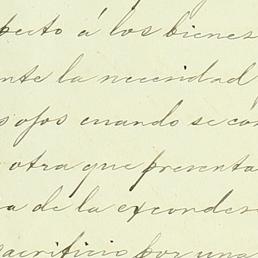 pecto á los bienes
nte la necesidad
s ojos cuando se con
otra que presenta
a de la esconder
sacrificio por una